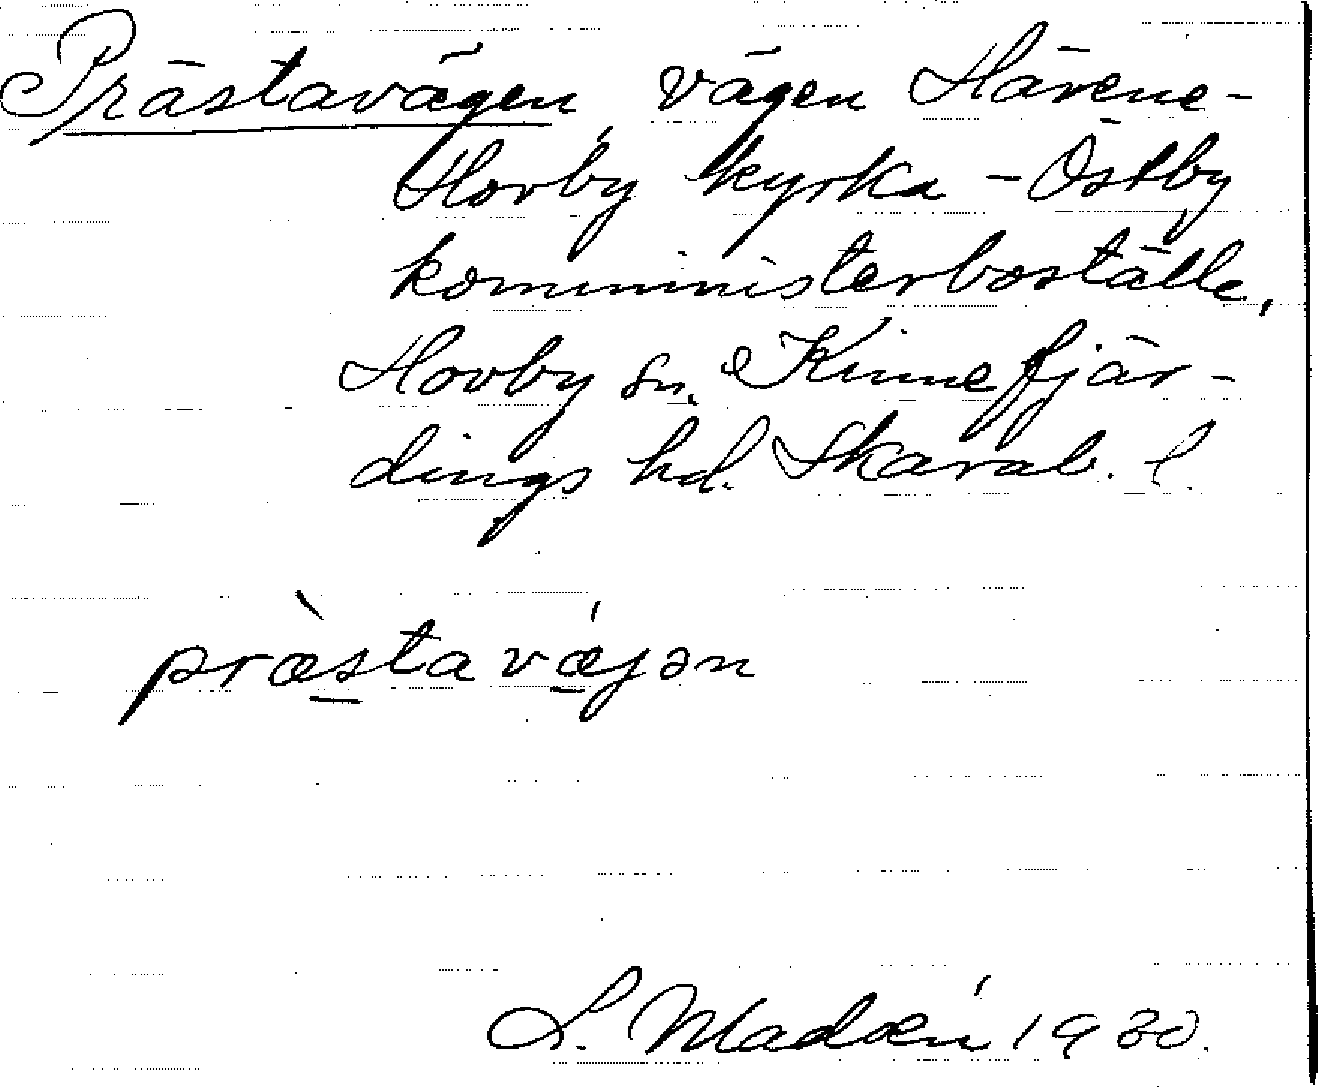 Prästavägen, vägen Härene-
Hovby kyrka - Östby
komministerboställe,
Hovby sn. Kinnefjär-
dings hd. Skarab. l.
præstavæjən
S. Madsén 1930.